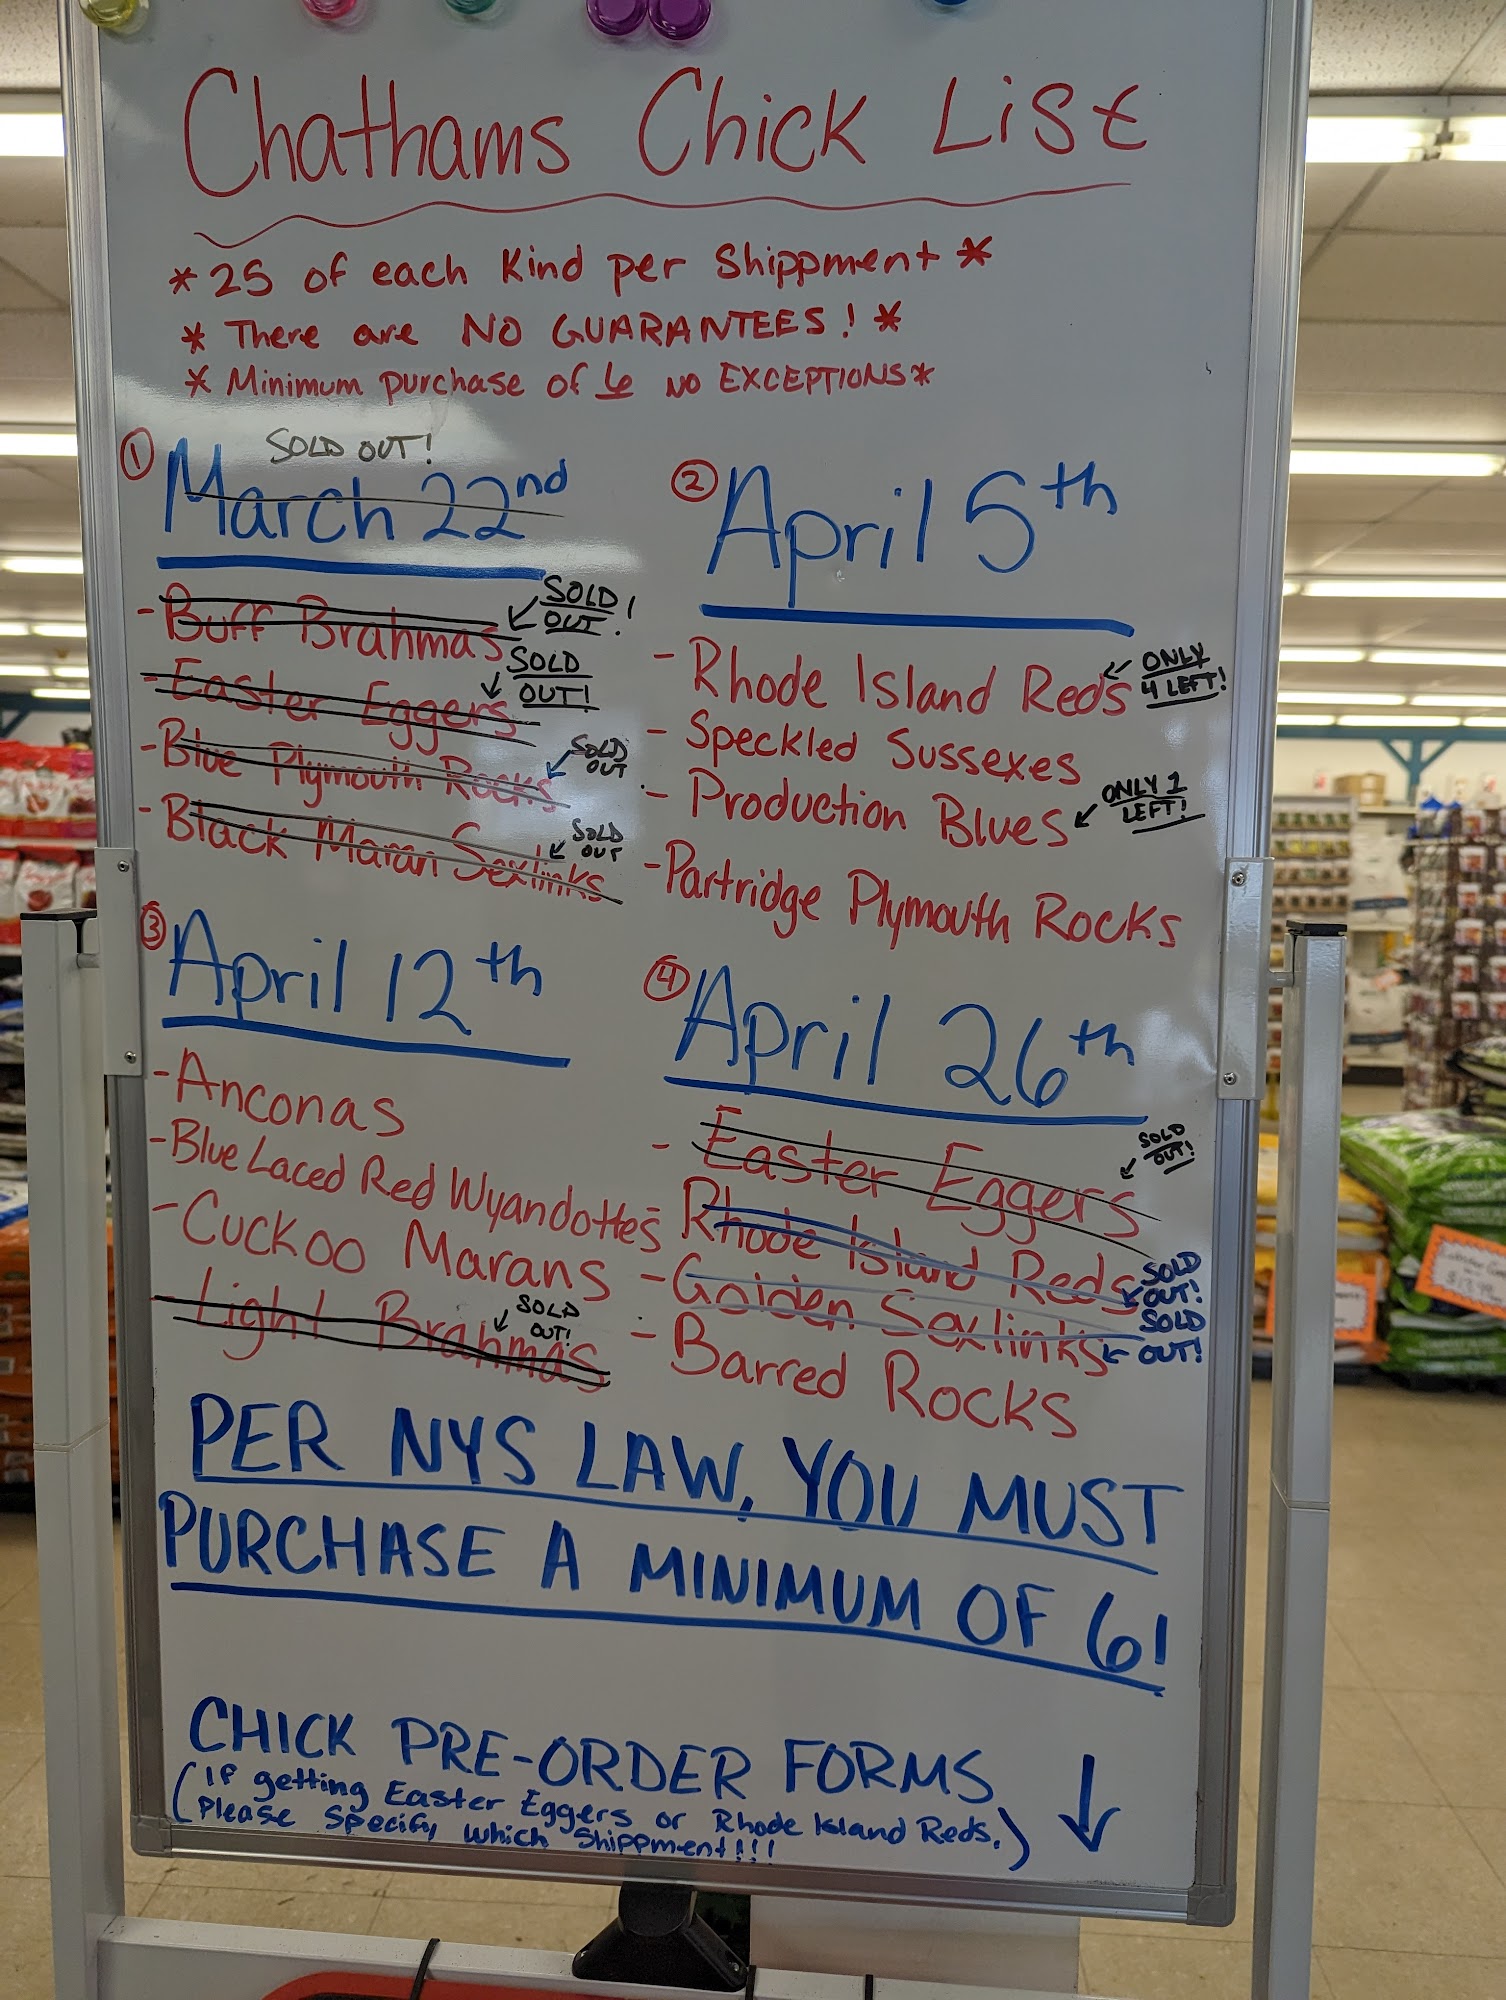 Chathams Chick List
* 25 of each Kind per Shippment *
* There are NO GUARANTEES! *
* Minimum purchase of 6 NO EXCEPTIONS *
SOLD OUT!
① March 22nd
- Buff Brahmas ↙ SOLD OUT!
- Easter Eggers ↙ SOLD OUT!
- Blue Plymouth Rocks ↙ SOLD OUT
- Black Maran Sexlinks ↙ SOLD OUT
② April 5th
- Rhode Island Reds ↙ ONLY 4 LEFT!
- Speckled Sussexes
- Production Blues ↙ ONLY 1 LEFT!
- Partridge Plymouth Rocks
③ April 12th
- Anconas
- Blue Laced Red Wyandottes
- Cuckoo Marans
- Light Brahmas ↙ SOLD OUT!
④ April 26th
- Easter Eggers ↙ SOLD OUT!
- Rhode Island Reds ↙ SOLD OUT!
- Golden Sexlinks ← SOLD OUT!
- Barred Rocks
PER NYS LAW, YOU MUST
PURCHASE A MINIMUM OF 6!
CHICK PRE-ORDER FORMS ↓
(If getting Easter Eggers or Rhode Island Reds.
Please Specify which Shippment!!!)